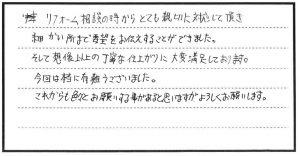 リフォーム相談の時からとても親切に対応して頂き
細かい所まで要望をお伝えすることができました。
そして想像以上の丁寧な仕上がりに大変満足しております。
今回は誠に有難うございました。
これからも色々お願いする事があると思いますがよろしくお願いします。